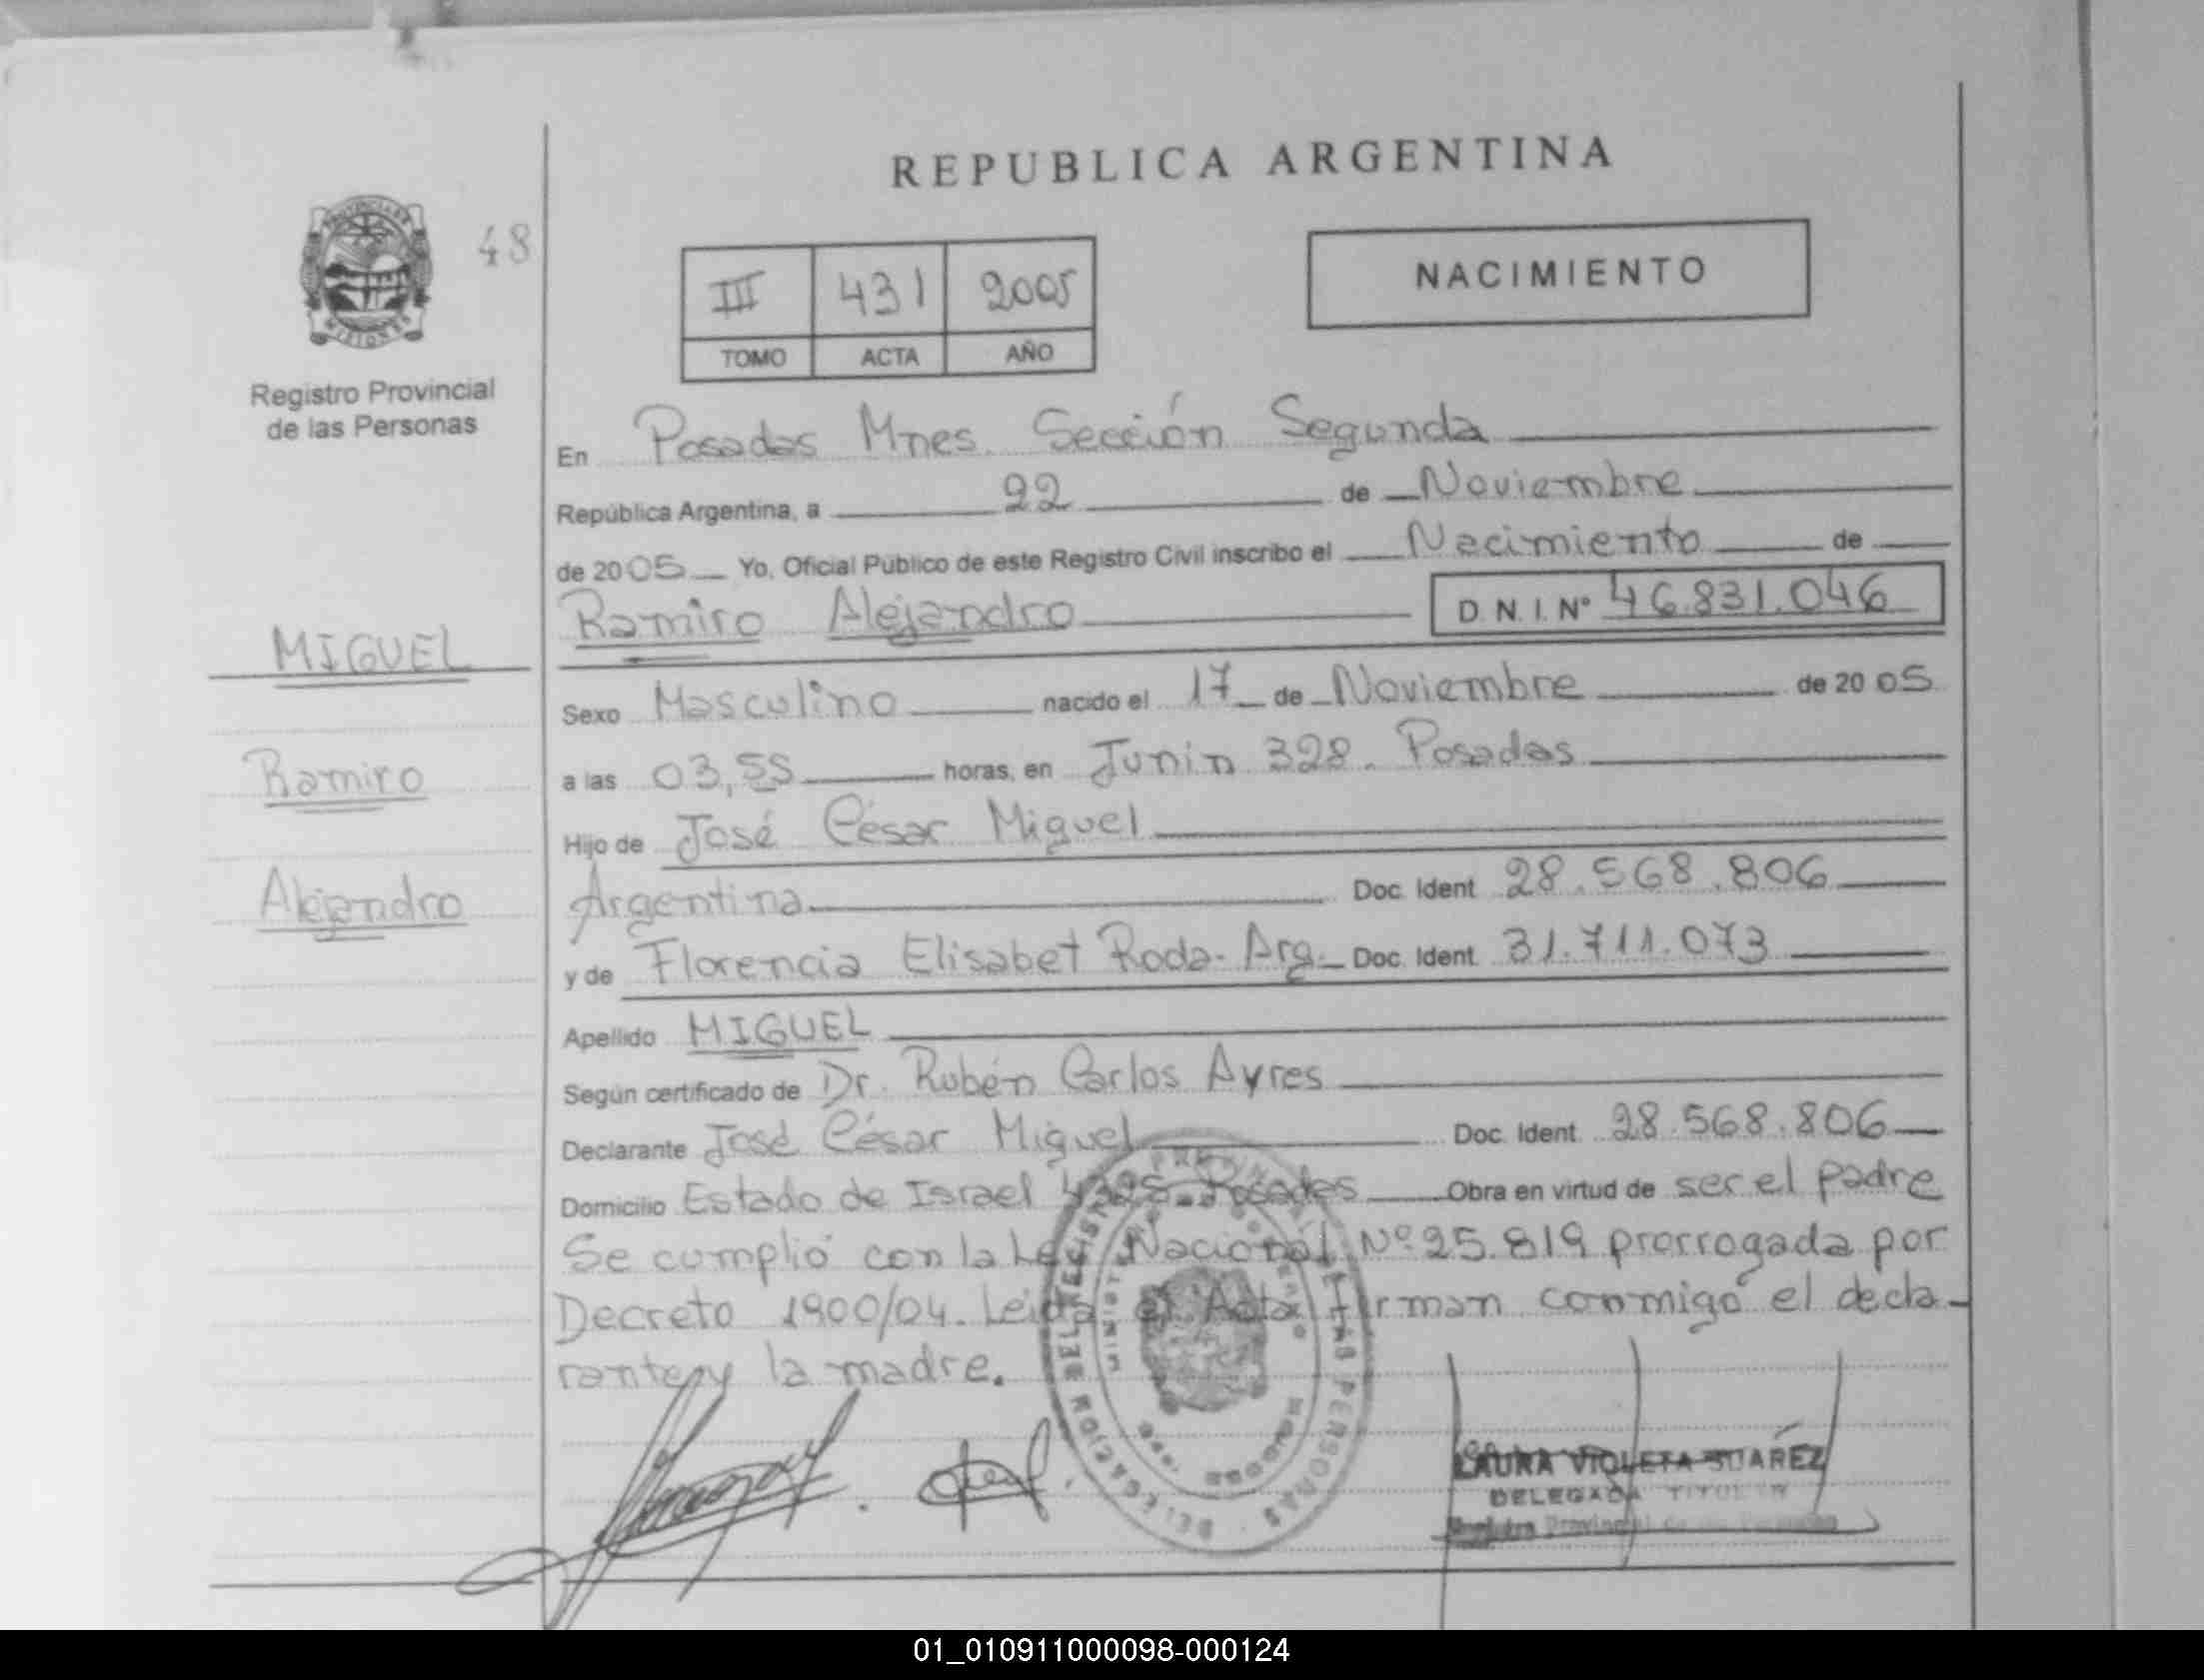 REPUBLICA ARGENTINA
PROVINCIA DE
MISIONES
48
Registro Provincial
de las Personas
III 431 2005
TOMO ACTA AÑO
NACIMIENTO
En Posadas Mnes. Sección Segunda
República Argentina, a 22 de Noviembre
de 2005 Yo, Oficial Público de este Registro Civil inscribo el Nacimiento de
Ramiro Alejandro D.N.I. Nº 46.831.046
MIGUEL
Ramiro
Alejandro
Sexo Masculino nacido el 17 de Noviembre de 2005
a las 03,55 horas, en Junin 328. Posadas
Hijo de José César Miguel
Argentina Doc. Ident. 28.568.806
y de Florencia Elisabet Roda - Arg. Doc. Ident. 31.711.073
Apellido MIGUEL
Según certificado de Dr. Rubén Carlos Ayres
Declarante José César Miguel Doc. Ident. 28.568.806
Domicilio Estado de Israel Posadas Obra en virtud de ser el padre
Se cumplió con la Ley Nacional Nº 25.819 prorrogada por
Decreto 1900/04. Leida el Acta firman conmigo el decla-
rante y la madre.
DELEGACION DEL REGISTRO PROVINCIAL DE LAS PERSONAS
MINISTERIO DE GOBIERNO
POSADAS
LAURA VIOLETA SUAREZ
DELEGADA TITULAR
Registro Provincial de las Personas
01_010911000098-000124